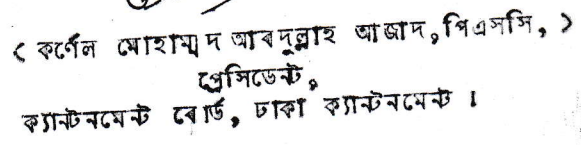 < কর্ণেল মোহাম্মদ আবদুল্লাহ আজাদ, পিএসসি, >
প্রেসিডেন্ট,
ক্যান্টনমেন্ট বোর্ড, ঢাকা ক্যান্টনমেন্ট ।